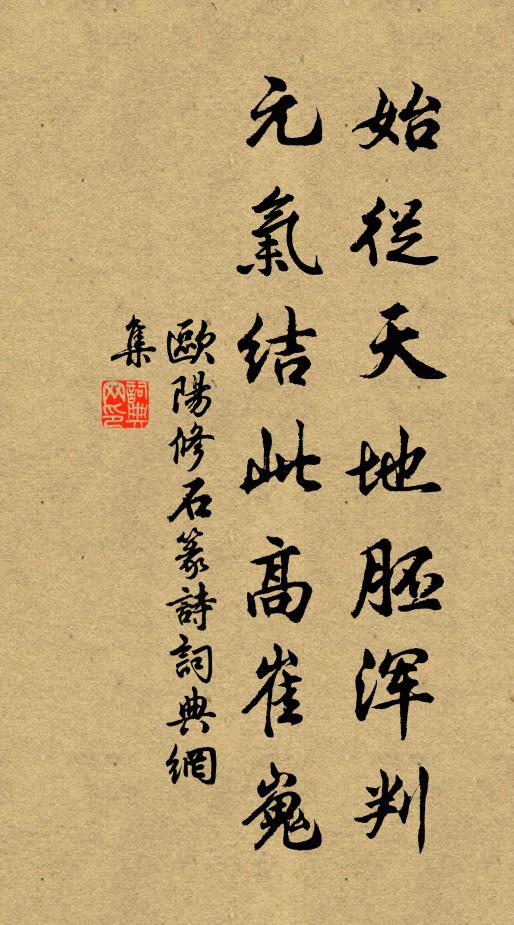 始從天地胚渾判
元氣結此高崔嵬
歐陽修石篆詩詞典網
集
詞典
网印